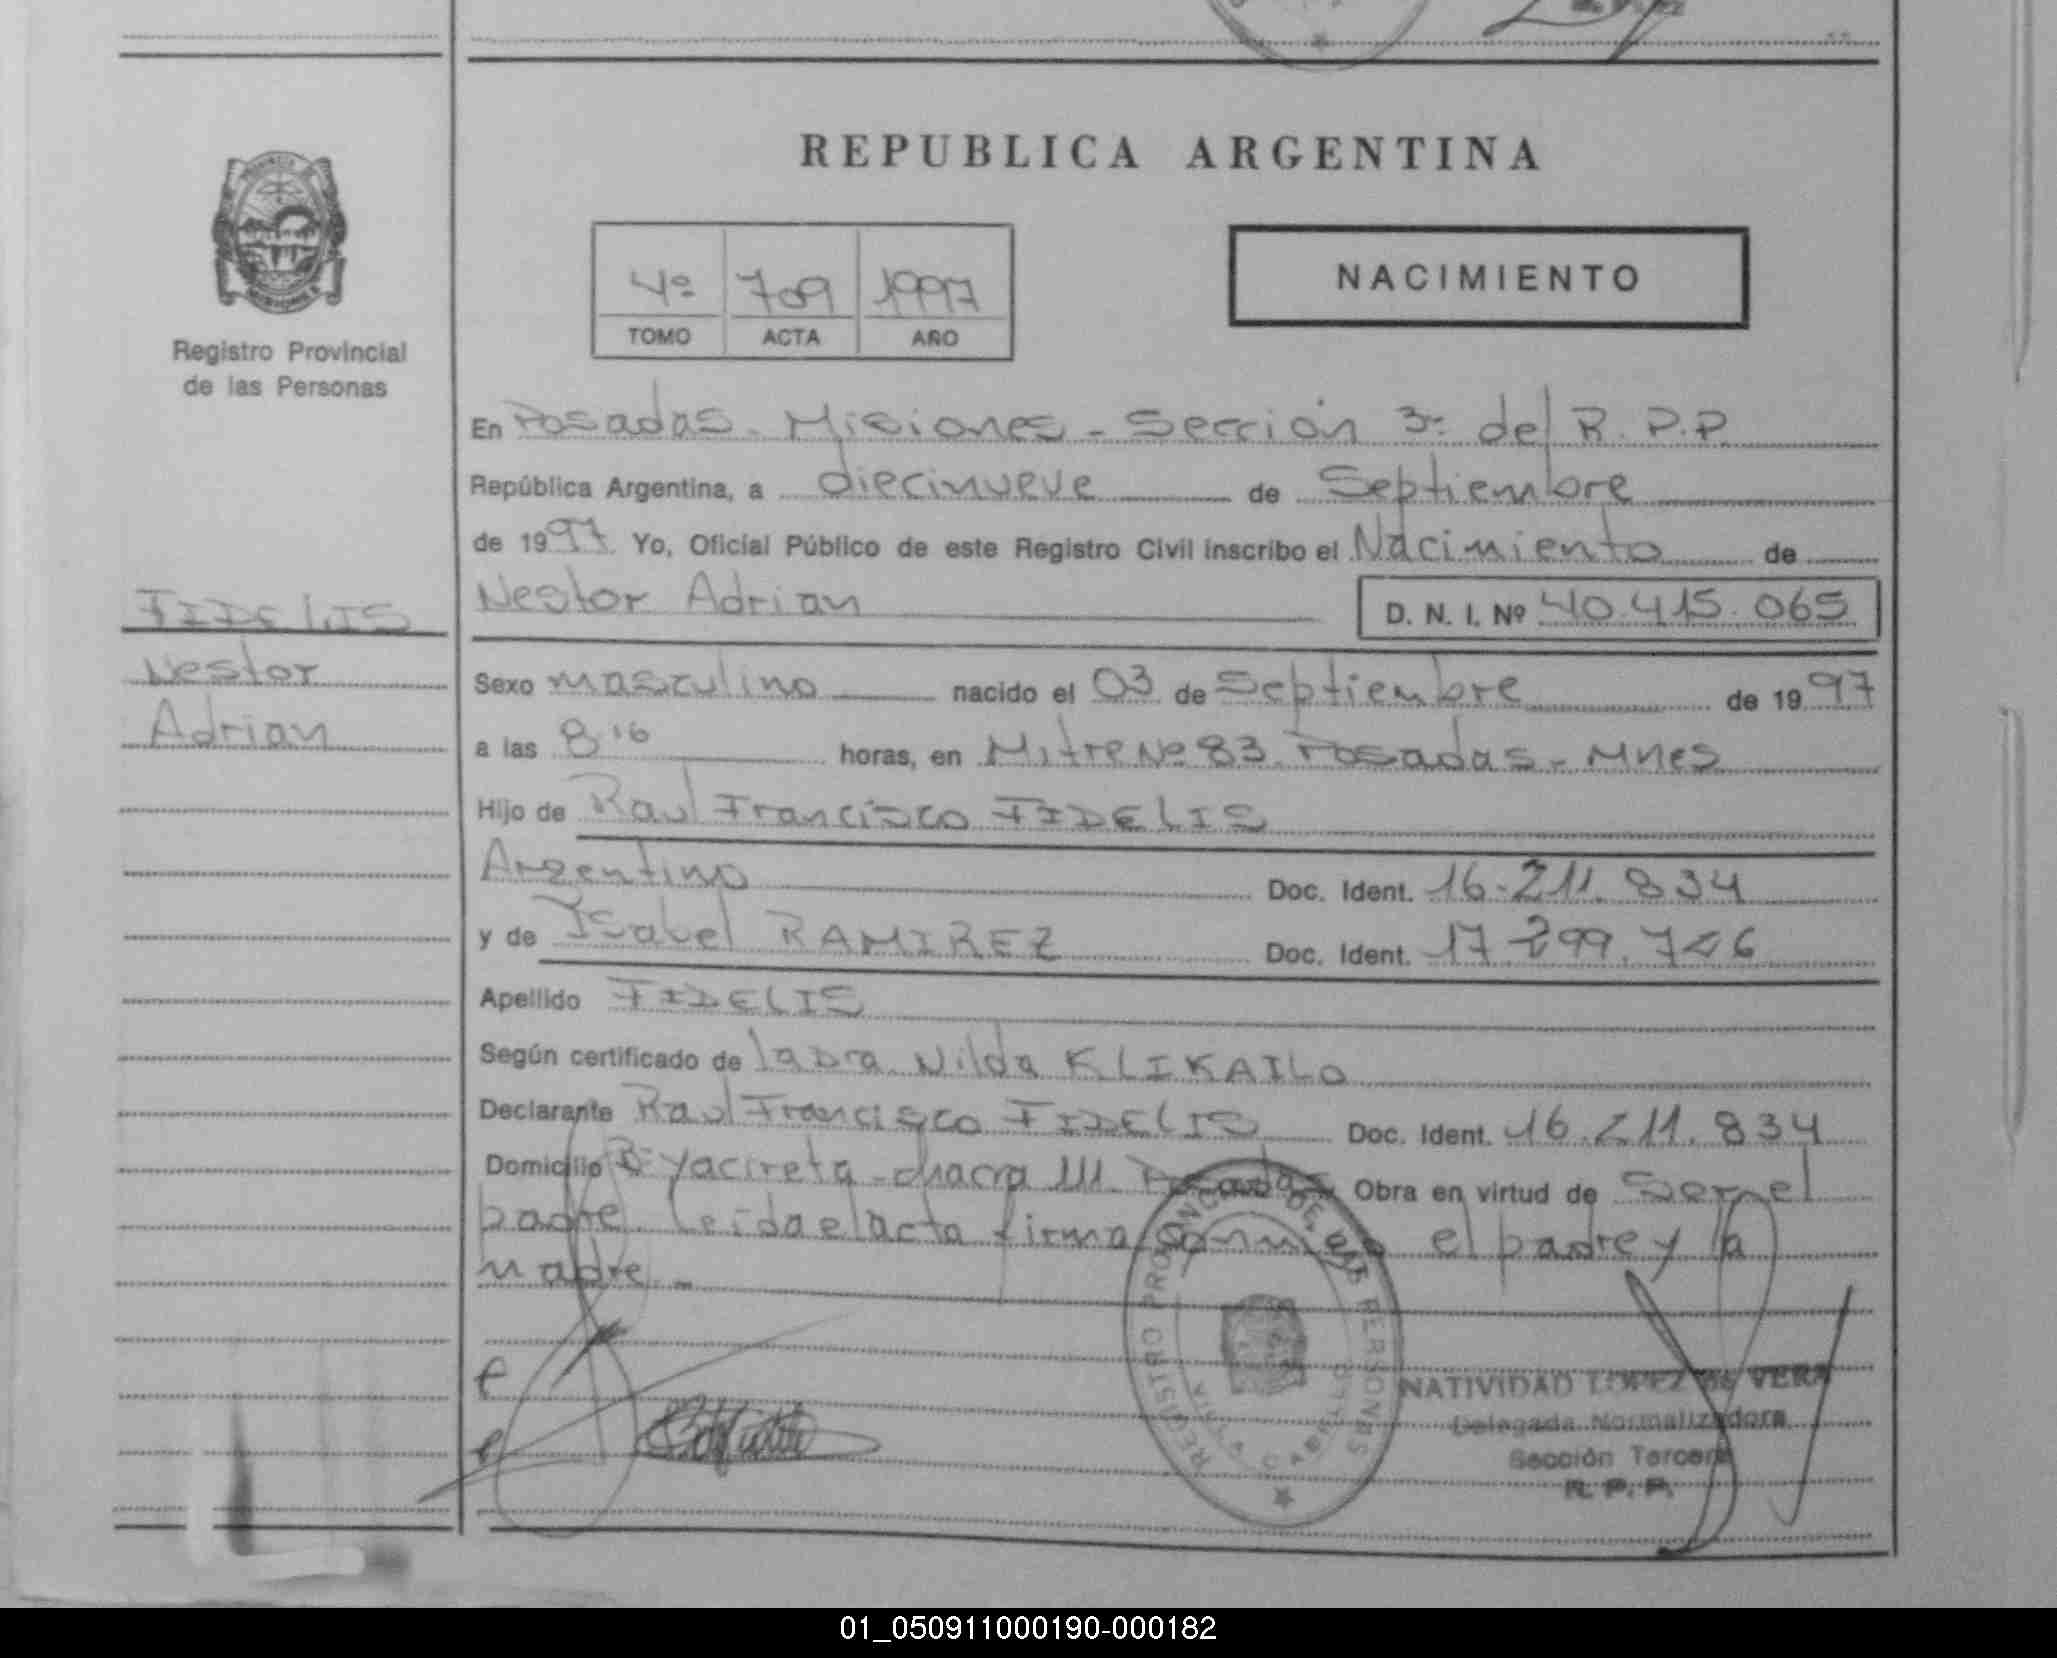 REPUBLICA ARGENTINA
4º 709 1997
TOMO ACTA AÑO
NACIMIENTO
Registro Provincial
de las Personas
En Posadas - Misiones - Sección 3ª del R.P.P.
República Argentina, a diecinueve de Septiembre
de 1997 Yo, Oficial Público de este Registro Civil inscribo el Nacimiento de
Nestor Adrian
D. N. I. Nº 40.415.065
FIDELIS
Nestor
Adrian
Sexo masculino nacido el 03 de Septiembre de 1997
a las 8 16 horas, en Mitre Nº 83 Posadas - Mnes
Hijo de Raul Francisco FIDELIS
Argentino Doc. Ident. 16.211.834
y de Isabel RAMIREZ Doc. Ident. 17.299.746
Apellido FIDELIS
Según certificado de Nilda KLIKAILO
Declarante Raul Francisco FIDELIS Doc. Ident. 16.211.834
Domicilio Bº Yacireta - chacra Posadas Obra en virtud de Ser el
padre. Leida el acta firma el padre y la
madre. -
REGISTRO PROVINCIAL DE LAS PERSONAS
NATIVIDAD LOPEZ de VERA
Delegada Normalizadora
Sección Tercera
R. P. P.
01_050911000190-000182